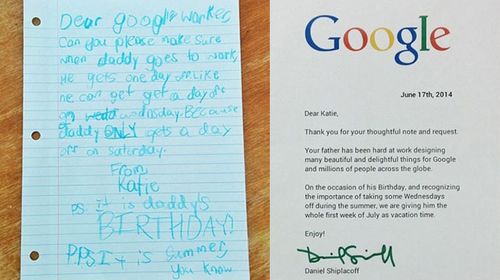 Dear google worker,
Can you please make sure
when daddy goes to work,
He gets one day off. Like
he can get get a day off
on wednesday. Because
daddy ONLY gets a day
off on saturday.
From,
Katie
P.S. it is daddy's
BIRTHDAY!
PPS It is summer,
you know
Google
June 17th, 2014
Dear Katie,
Thank you for your thoughtful note and request.
Your father has been hard at work designing
many beautiful and delightful things for Google
and millions of people across the globe.
On the occasion of his Birthday, and recognizing
the importance of taking some Wednesdays
off during the summer, we are giving him the
whole first week of July as vacation time.
Enjoy!
Daniel Shiplacoff